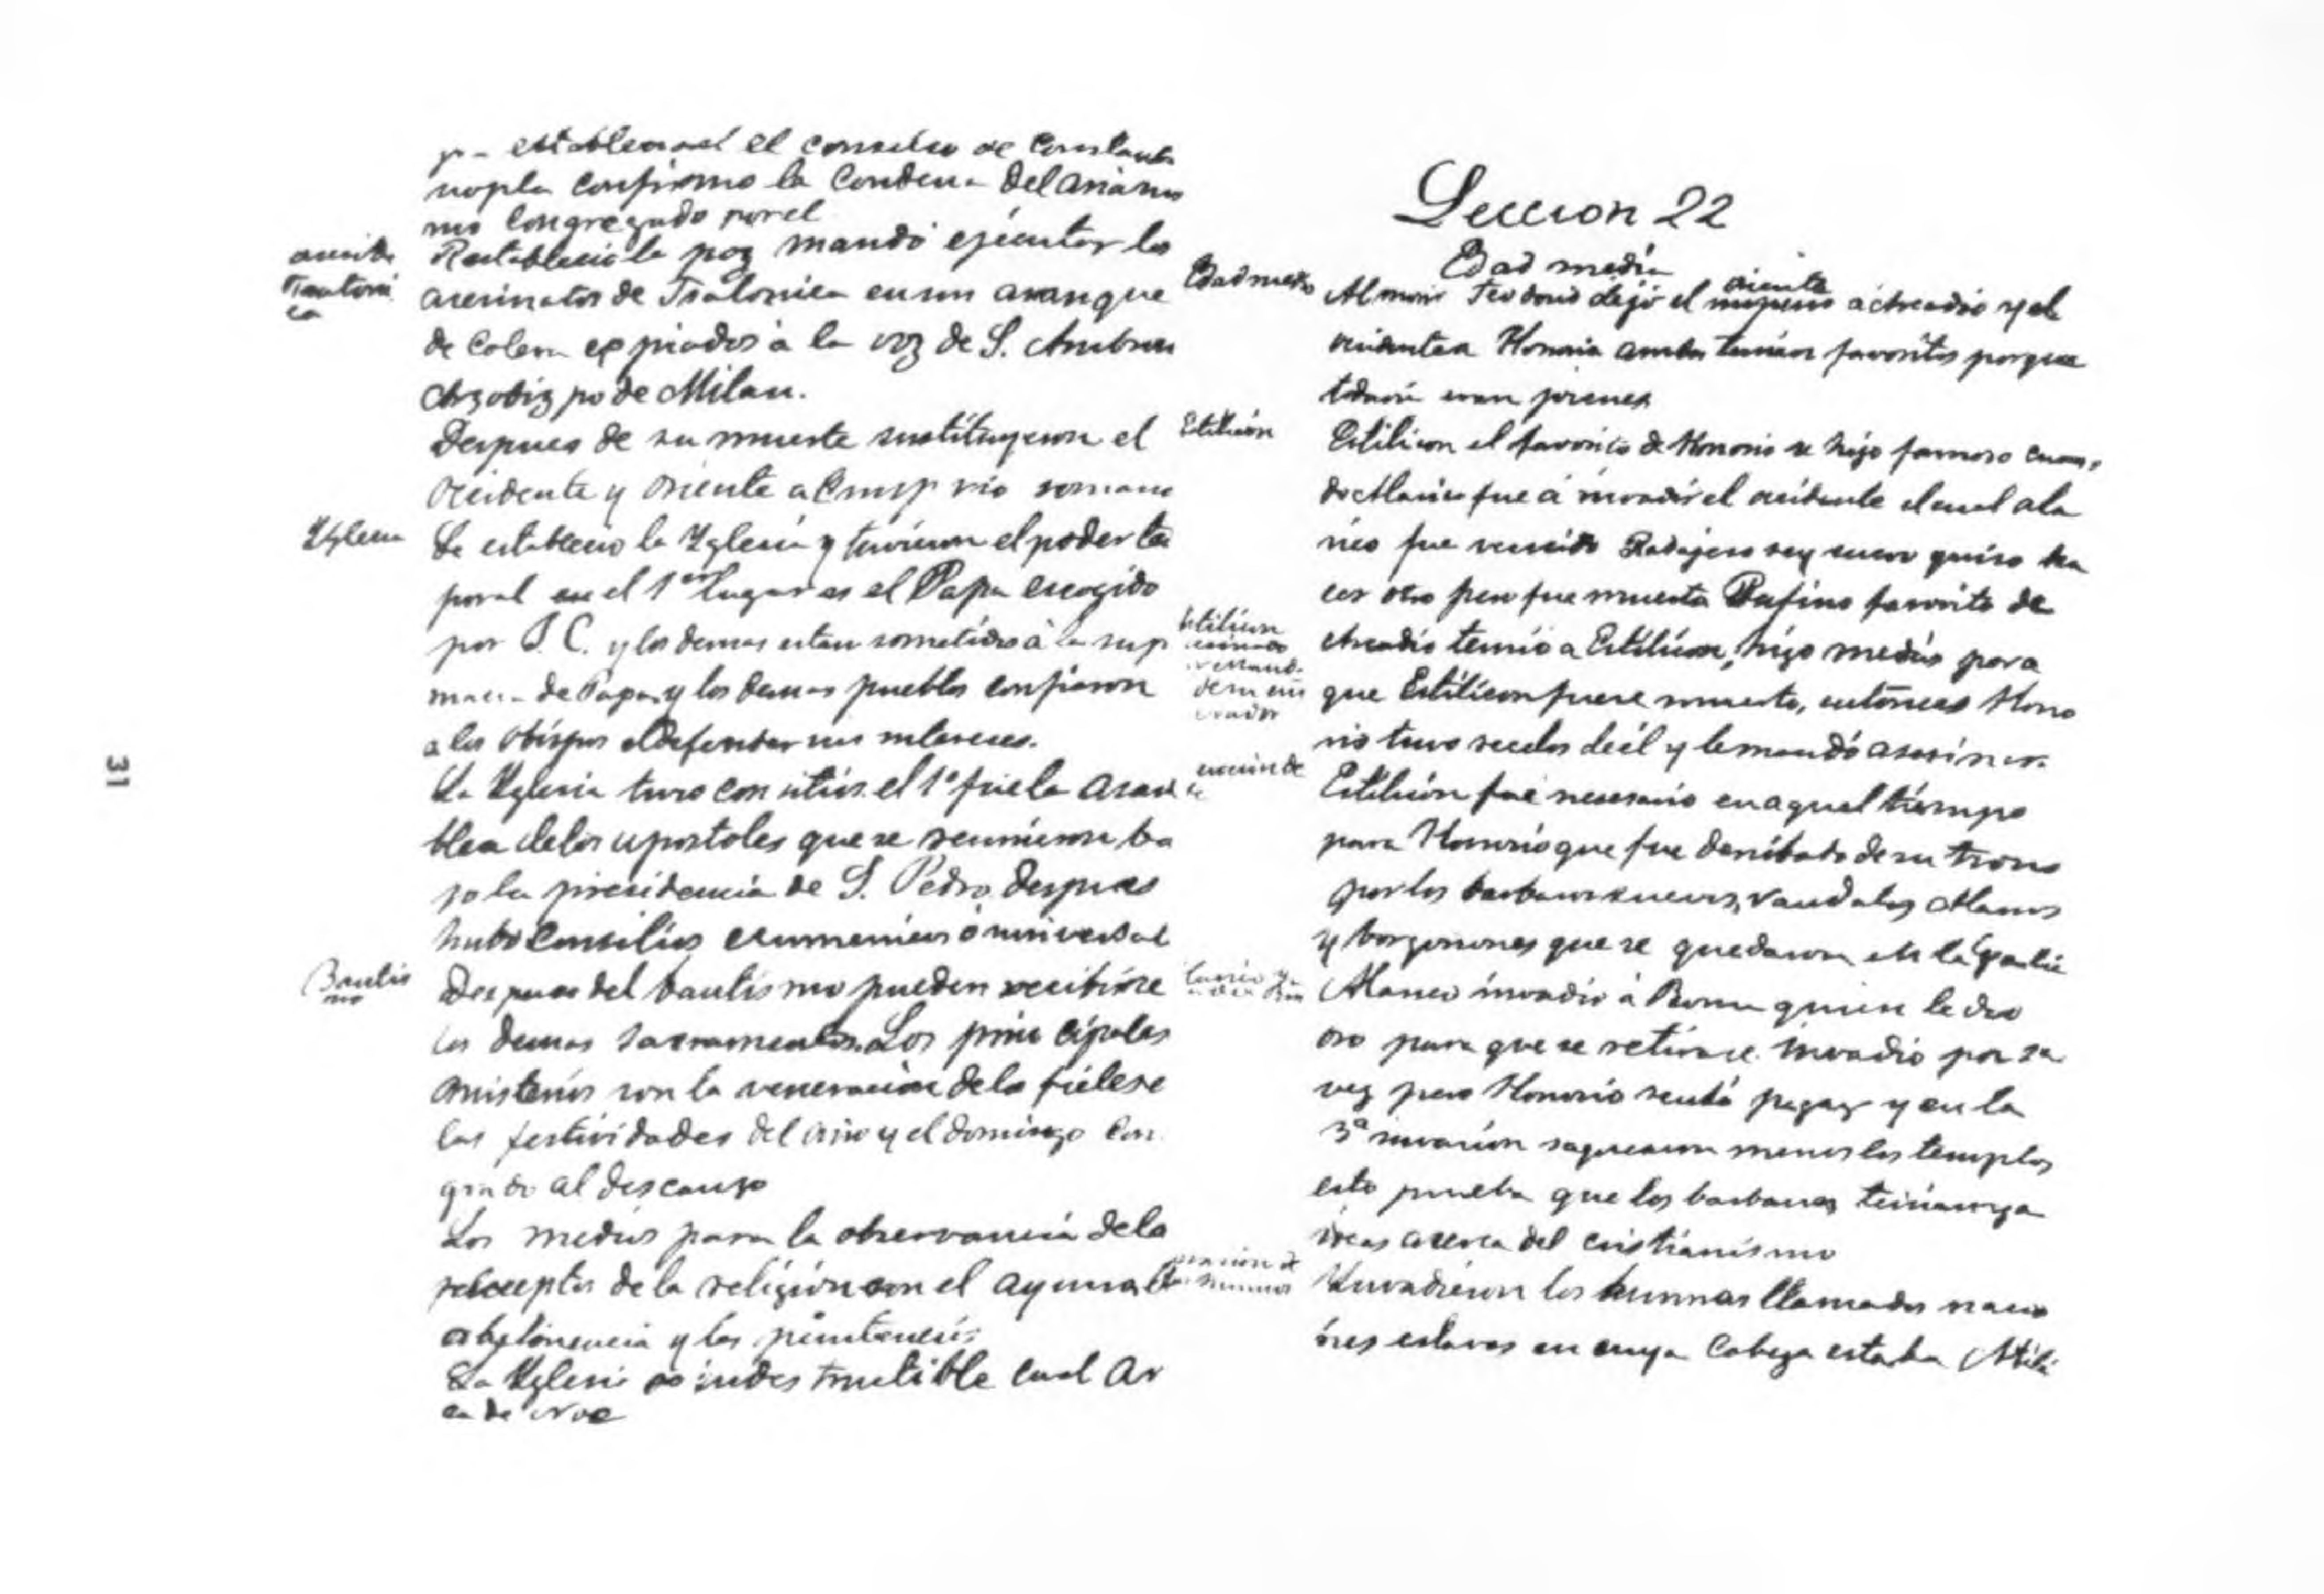 el de
nopla confirmo la Condena del arianis
mo Congregado por el
Restableció la paz mandó ejecutar los
asesinatos de Tsalonica en un aranque
de Colera expiados á la voz de S. Ambros
Arzobizpo de Milan.
Despues de su muerte sustituyeron el
Occidente y Oriente al romano
Yglesia
Se establecio la Yglesia y tuvieron el poder te
poral en el 1er lugar es el Papa escogido
por J. C. y los demas estan sometidos á la sup
de Papa y los demas pueblos confiaron
a los obispos el defender sus intereses.
La Yglesia tuvo el 1º fue la asam
blea de los apostoles que se reunieron ba
jo la presidencia de S. Pedro despues
hubo Consilios ecumenicos ó universal
Bautis
mo
Despues del bautismo pueden recibirse
los demas sacramentos. Los principales
misterios son la veneracion de los fieles
las festividades del año y el domingo Con
grado al descanso
Los medios para la observancia de los
preceptos de la religión son el ayuno, la
y las penitencias
La Yglesia es indestructible cual ar
ca de Noe
Leccion 22
Edad media
Edad media
oriente
Al morir Teodosio dejó el á Arcadio y el
occidente a Honorio ambos tenian favoritos porque
todavia eran jovenes
Estilicón
Estilicon el favorito de Honorio se hizo famoso cuan
do Alarico fue á invadir el occidente el cual ala
rico fue vencido Radajeso rey suevo quiso ha
cer otro pero fue muerto Rufino favorito de
Arcadio temio a Estilicon, hizo medios para
que Estilicon fuese muerto, entonces Hono
rio tuvo recelos de él y le mandó asesinar.
Estilicón
Estilicón fue necesario en aquel tiempo
para Honorio que fue derribado de su trono
por los barbaros suevos, vandalos Alanos
y borgoñones que se quedaron en la Galia
Alarico invadió á Roma quien le dio
oro para que se retirase. Invadio por 2a
vez pero Honorio pagar y en la
3ª invasion saquearon menos los templos
esto prueba que los barbaros tenian ya
ideas acerca del cristianismo
Ynvadieron los hunnos llamados nacio
nes eslavas en cuya Cabeza estaba Atila
31